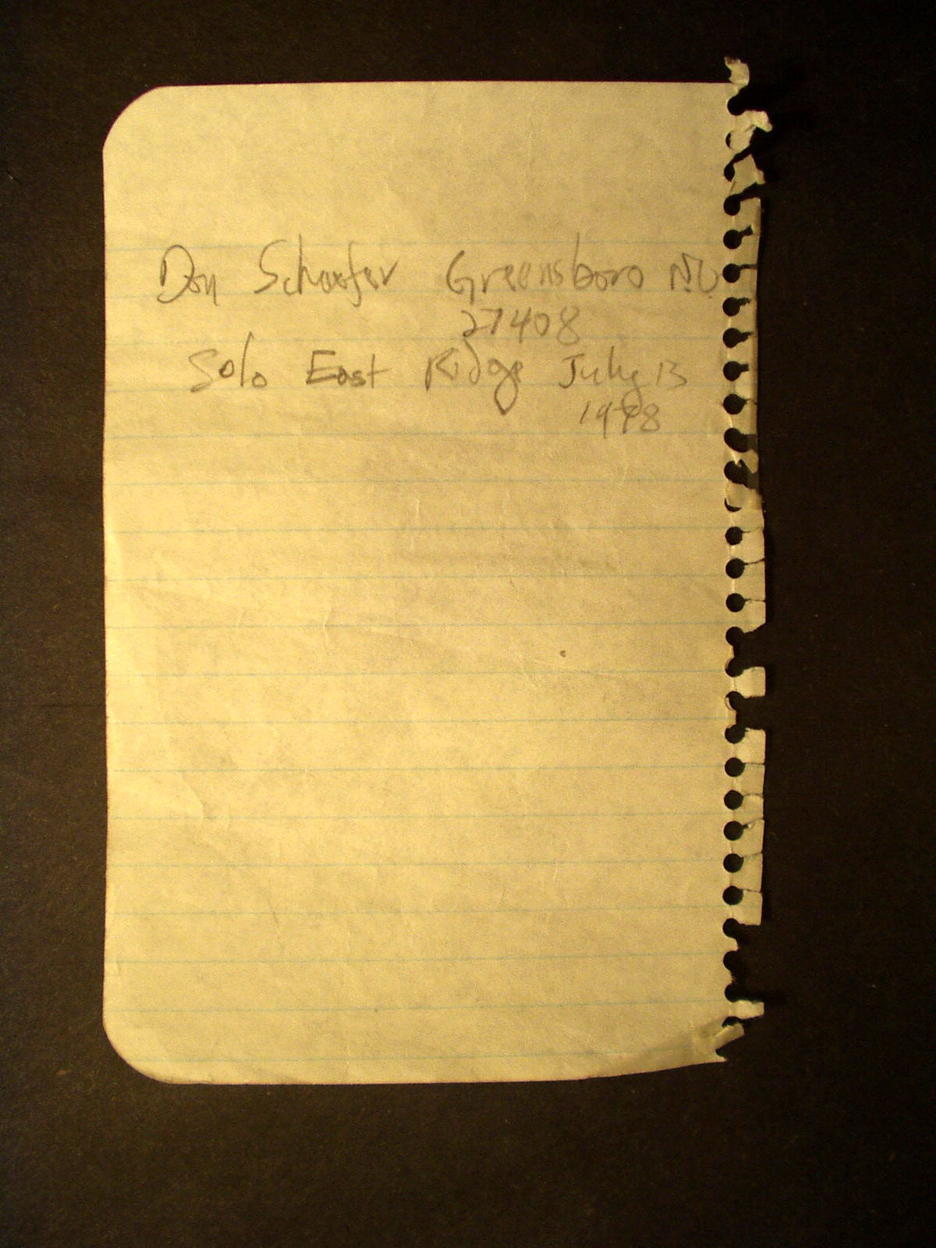 Don Schaefer Greensboro NC
27408
Solo East Ridge July 13
1998